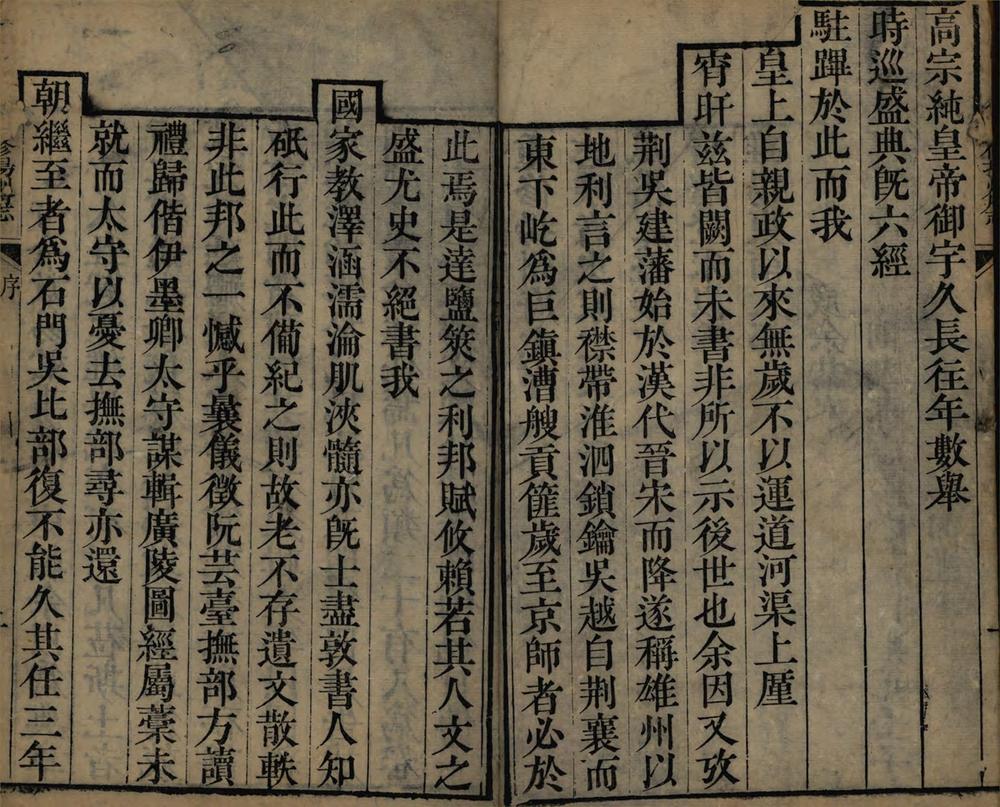 高宗純皇帝御宇久長往年數舉
時巡盛典旣六經
駐蹕於此而我
皇上自親政以來無歲不以運道河渠上厪
宵旰兹皆闕而未書非所以示後世也余因又攷
荆吳建藩始於漢代晉宋而降遂稱雄州以
地利言之則襟帶淮泗鎖鑰吳越自荆襄而
東下屹爲巨鎭漕艘貢篚歲至京師者必於
此焉是達鹽筴之利邦賦攸賴若其人文之
盛尤史不絕書我
國家教澤涵濡淪肌浹髓亦旣士盡敦書人知
砥行此而不備紀之則故老不存遺文散軼
非此邦之一憾乎曩儀徵阮芸臺撫部方讀
禮歸偕伊墨卿太守謀輯廣陵圖經屬藁未
就而太守以憂去撫部尋亦還
朝繼至者爲石門吳比部復不能久其任三年
序